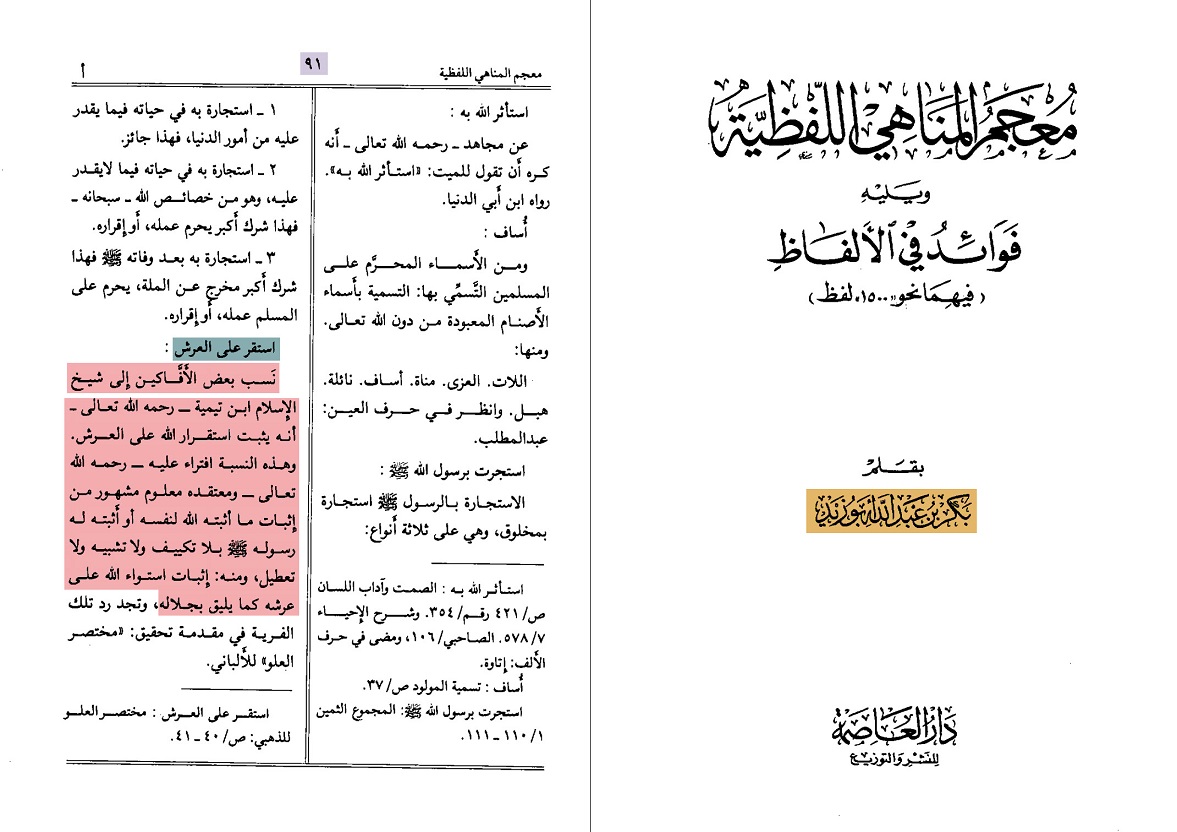 معجم المناهي اللفظية
ويليه
فوائد في الألفاظ
(فيهما نحو «١٥٠٠» لفظ)
بقلم
بكر بن عبد الله أبو زيد
دار العاصمة
للنشر والتوزيع
معجم المناهي اللفظية
٩١
أ
استأثر الله به :
عن مجاهد ــ رحمه الله تعالى ــ أَنه
كره أَن تقول للميت: «استأثر الله به».
رواه ابن أَبي الدنيا.
أُساف :
ومن الأَسماء المحرَّم على
المسلمين التَّسمِّي بها: التسمية بأَسماء
الأَصنام المعبودة من دون الله تعالى.
ومنها:
اللات. العزى. مناة. أساف. نائلة.
هبل. وانظر في حرف العين:
عبدالمطلب.
استجرت برسول الله ﷺ :
الاستجارة بالرسول ﷺ استجارة
بمخلوق، وهي على ثلاثة أَنواع:
استأثر الله به : الصمت وآداب اللسان
ص/ ٤٢١ رقم/ ٣٥٤. وشرح الإحياء
٧/ ٥٧٨. الصاحبي/ ١٠٦، ومضى في حرف
الألف: إتاوة.
أُساف : تسمية المولود ص/ ٣٧.
استجرت برسول الله ﷺ: المجموع الثمين
١/ ١١٠ ــ ١١١.
١ ــ استجارة به في حياته فيما يقدر
عليه من أمور الدنيا، فهذا جائز.
٢ ــ استجارة به في حياته فيما لايقدر
عليه، وهو من خصائص الله ــ سبحانه ــ
فهذا شرك أَكبر يحرم عمله، أَو إقراره.
٣ ــ استجارة به بعد وفاته ﷺ فهذا
شرك أَكبر مخرج عن الملة، يحرم على
المسلم عمله، أَو إقراره.
استقر على العرش :
نَسب بعض الأَفَّاكين إِلى شيخ
الإِسلام ابن تيمية ــ رحمه الله تعالى ــ
أَنه يثبت استقرار الله على العرش.
وهذه النسبة افتراء عليه ــ رحمه الله
تعالى ــ ومعتقده معلوم مشهور من
إِثبات ما أَثبته الله لنفسه أو أَثبته له
رسوله ﷺ بلا تكييف ولا تشبيه ولا
تعطيل، ومنه: إِثبات استواء الله على
عرشه كما يليق بجلاله، وتجد رد تلك
الفرية في مقدمة تحقيق: «مختصر
العلو» للأَلباني.
استقر على العرش : مختصر العلو
للذهبي: ص/ ٤٠ ــ ٤١.